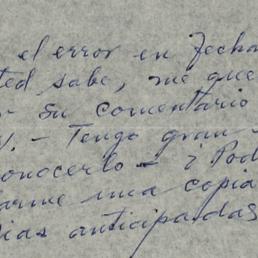 el error en fecha
ted sabe, me que
su comentario
. - Tengo gran
onocerlo - ¿ Pod
arme una copia
ias anticipadas